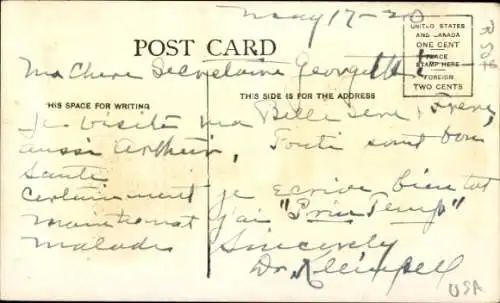 May 17-20
POST CARD
UNITED STATES
AND CANADA
ONE CENT
PLACE
STAMP HERE
FOREIGN
TWO CENTS
Ma Chere Secretaire Georgette
HIS SPACE FOR WRITING
THIS SIDE IS FOR THE ADDRESS
Je visite ma Belle Sere, Frere,
aussi Arthur, Touti sont bon
sante
Certainment je ecrive bien tot
maintenant J'ai "Prin Temp"
malade
Sincerely
Dr.
USA